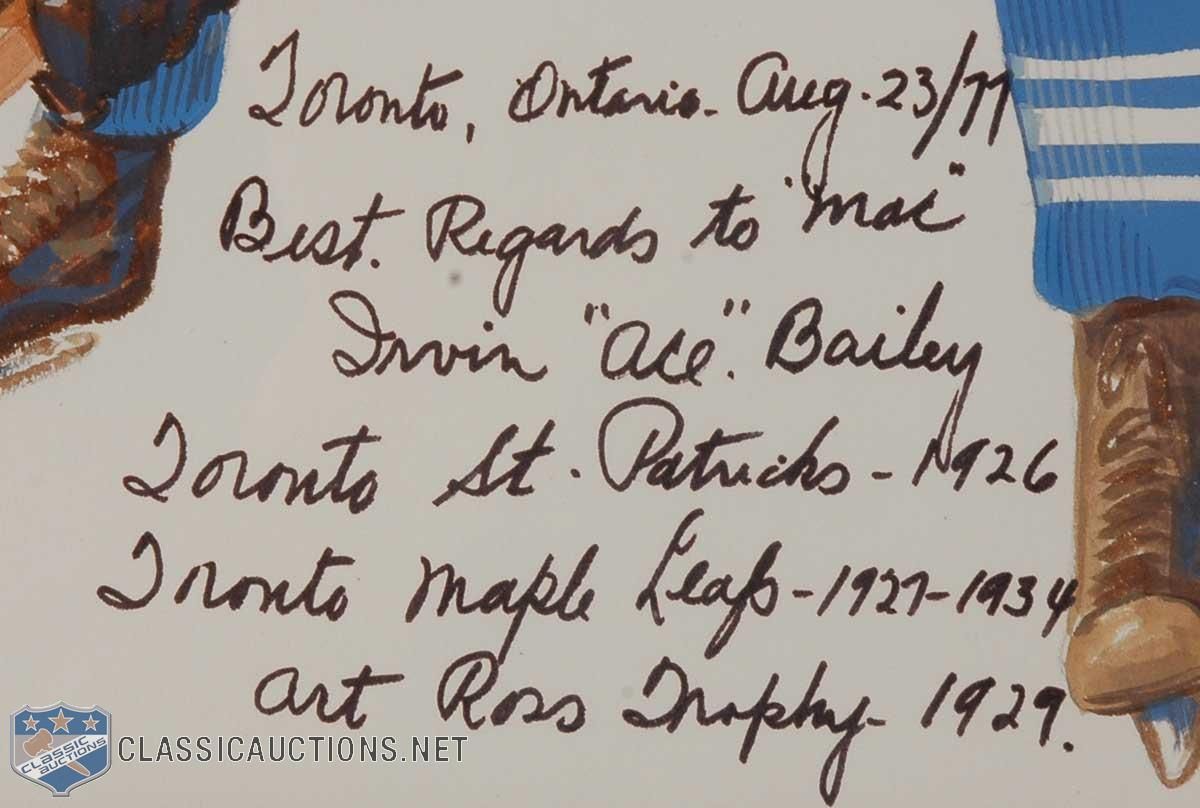 Toronto, Ontario. Aug. 23/77
Best. Regards to "Mac"
Irvin "Ace". Bailey
Toronto St. Patricks - 1926
Toronto Maple Leafs - 1927 - 1934
Art Ross Trophy - 1929.
CLASSIC AUCTIONS
CLASSICAUCTIONS.NET